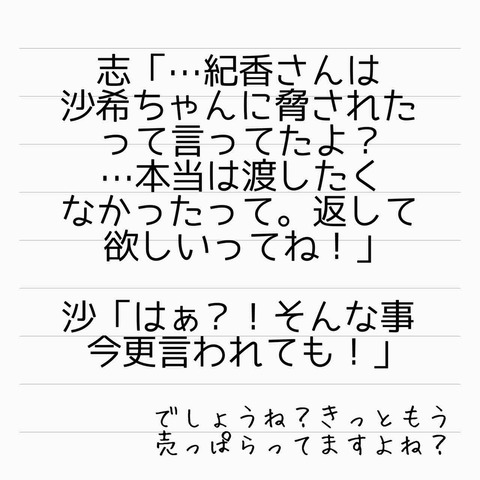 志「…紀香さんは
沙希ちゃんに脅された
って言ってたよ？
…本当は渡したく
なかったって。返して
欲しいってね！」
沙「はぁ？！そんな事
今更言われても！」
でしょうね？きっともう
売っぱらってますよね？